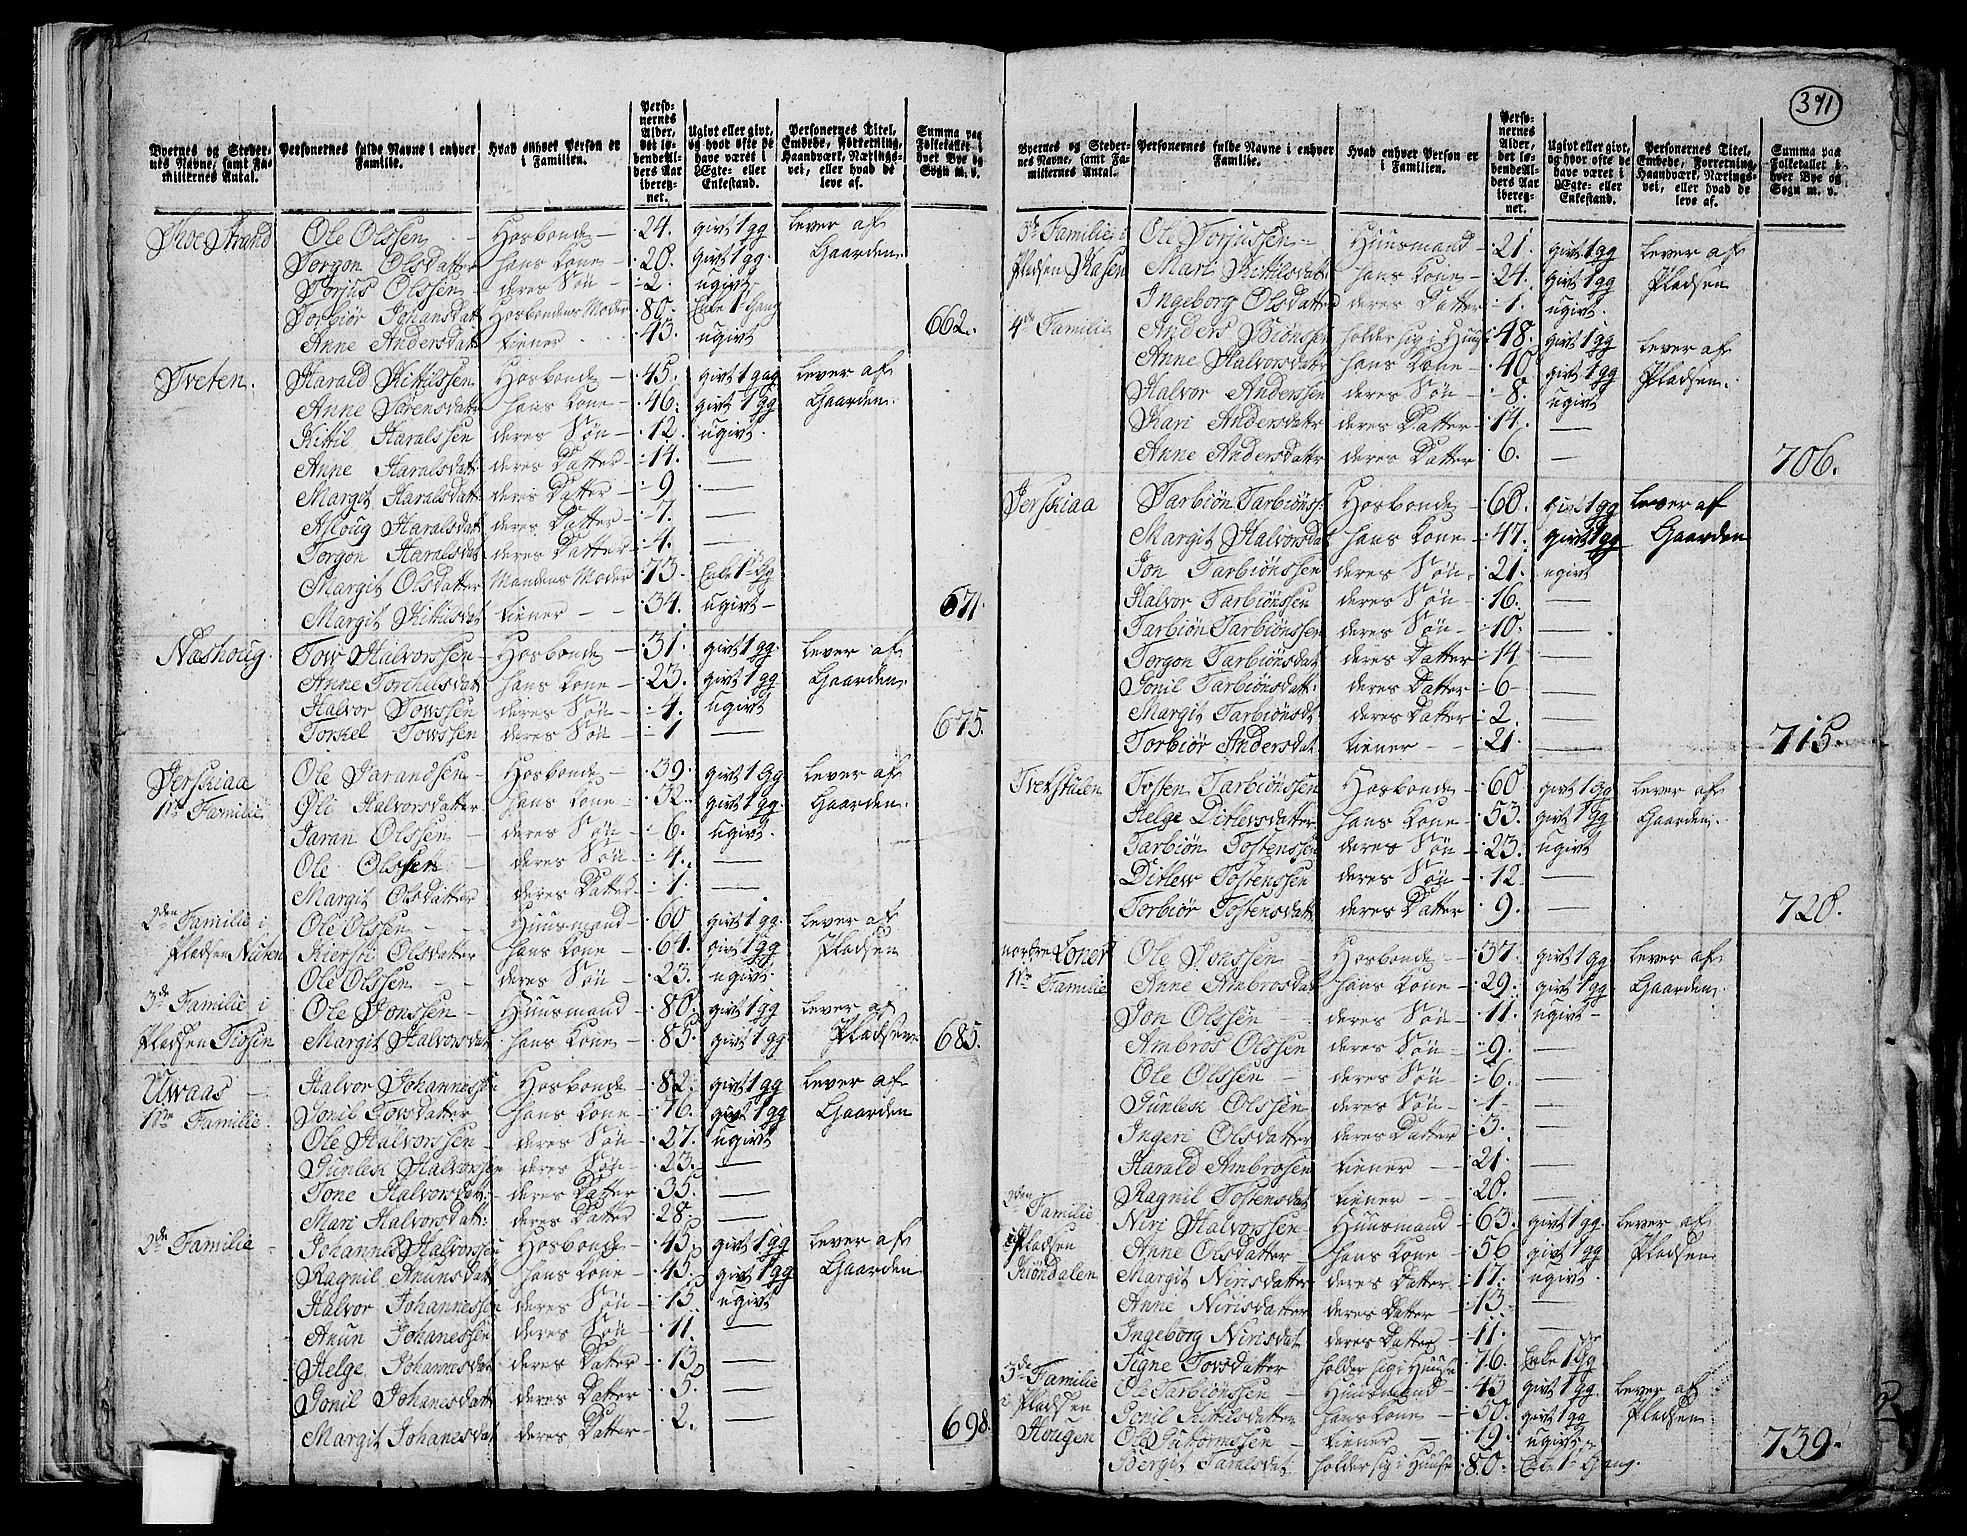 371
Byernes og Stedernes Navne, samt Familiernes Antal. Personernes fulde Navne i enhver Familie. Hvad enhver Person er i Familien. Personernes Alder, det løbende Alders Aar iberegnet. Ugivt eller givt, og hvor ofte de have været i Ægte- eller Enkestand. Personernes Titel, Embede, Forretning, Haandværk, Næringsvei, eller hvad de leve af. Summa paa Folketallet i hver Bye og Sogn m. v.
Ole Olssen Hosbonde 24. givt 1 gg lever af
Torgon Olsdatter hans Kone 20. givt 1 gg. Gaarden.
Torjus Olssen deres Søn 2. ugivt
Torbiør Johansdat Hosbondens Moder 80. Enke 1 Gang
Anne Andersdatt tiener 43. ugivt 662.
Tveten. Harald Kittilssen Hosbonde 45. givt 1 gag lever af
Anne Sørensdatter hans Kone 46. givt 1 gg Gaarden.
Kittil Haralssen deres Søn 12. ugivt.
Anne Haralsdatt deres Datter 14. —
Margit Haralsdatt deres Datter 9 —
Asloug Haralsdat deres Datter 7. —
Torgon Haralsdat deres Datter 4. —
Margit Olsdatter Mandens Moder 73. Enke 1ste gg
Margit Kittilsdat tiener 34. ugivt 671.
Næshoug. Tow Halvorssen Hosbonde 31. givt 1 gg. lever af
Anne Torchelsdat hans Kone 23. givt 1 gg Gaarden.
Halvor Towssen deres Søn 4. ugivt
Torkel Towssen deres Søn 1 — 675.
Jerskiaa Ole Jarandsen Hosbonde 39. givt 1 Gg lever af
1ste Familie Halvorsdatter hans Kone 32. givt 1 gg. Gaarden.
Jaran Olssen deres Søn 6. ugivt.
Ole Olssen deres Søn 4. —
Margit Olsdatter deres Datter 1. —
2den Familie i Ole Olssen Huusmand 60 givt 1 gg. lever af
Pladsen Nuten Kiersti Olsdatter hans Kone 64. givt 1 gg Pladsen
Ole Olssen deres Søn 23. ugivt.
3de Familie i Ole Jonssen Huusmand 80. givt 1 gg lever af
Pladsen Margit Halvorsdat hans Kone 85. givt 1 gg Pladsen 685.
Uwaas Halvor Johannessen Hosbonde 82. givt 1 gg lever af
1ste Familie. Gonil Towsdatter hans Kone 76. givt 1 gg Gaarden
Ole Halvorssen deres Søn 27. ugivt
Gunlek Halvorssen deres Søn 23. —
Tone Halvorsdatt: deres Datter 35. —
Mari Halvorsdatt: deres Datter 28. —
2de Familie Johannes Halvorssen Hosbonde 45. givt 1 gg lever af
Ragnil Anunsdatt hans Kone 45. givt 1 gg Gaarden
Halvor Johannessen deres Søn 15 ugivt
Anun Johanessen deres Søn 11. —
Helge Johannesdat deres Datter 13. —
Gonil Johanesdatt deres Datter 5. —
Margit Johanesdat deres Datter 2. — 698.
Byernes og Stedernes Navne, samt Familiernes Antal. Personernes fulde Navne i enhver Familie. Hvad enhver Person er i Familien. Personernes Alder, det løbende Alders Aar iberegnet. Ugivt eller givt, og hvor ofte de have været i Ægte- eller Enkestand. Personernes Titel, Embede, Forretning, Haandværk, Næringsvei, eller hvad de leve af. Summa paa Folketallet i hver Bye og Sogn m. v.
3de Familie i Ole Torjussen Huusmand 21. givt 1 gg lever af
Pladsen Mari Kittilsdatt hans Kone 24. givt 1 gg Pladsen
Ingeborg Olsdatter deres Datter 1. ugivt.
4de Familie Anders Biønssen holder sig i Huus 48. givt 1 gg lever af
Anne Halvorsdatter hans Kone 40 givt 1 gg Pladsen.
Halvor Anderssen deres Søn 8. ugivt
Kari Andersdatter deres Datter 14. —
Anne Andersdattr deres Datter 6. — 706.
Jerskiaa Tarbiøn Tarbiønss. Hosbonde 60. givt 1 gg lever af
Margit Halvorsdat hans Kone 47. givt 1 gg Gaarden
Jon Tarbiønssen deres Søn 21. ugivt
Halvor Tarbiønssen deres Søn 16. —
Tarbiøn Tarbiønssen deres Søn 10. —
Torgon Tarbiønsdat deres Datter 14 —
Gonil Tarbiønsdatt: deres Datter 6 —
Margit Tarbiønsdt deres Datter 2. —
Torbiør Andersdat tiener 21. — 715.
Tosten Tarbiønssen Hosbonde 60 givt 1 Gg lever af
Helge Ditlevsdatter hans Kone 53. givt 1 gg Gaarden.
Tarbiøn Tostenssen deres Søn 23. ugivt
Ditlew Tostenssen deres Søn 12 —
Torbiør Tostensdatt deres Datter 9. — 720.
nordre Loner Ole Jonssen Hosbonde 37. givt 1 gg. lever af
1ste Familie Anne Ambrosdat hans Kone 29. givt 1 gg. Gaarden.
Jon Olssen deres Søn 11. ugivt
Ambros Olssen deres Søn 9. —
Ole Olssen deres Søn 6. —
Gunlek Olssen deres Søn 1 —
Ingeri Olsdatter deres Datter 3. —
Harald Ambrosen tiener 21. —
Ragnil Tostensdat tiener 20. —
2den Familie Niri Halvorssen Huusmand 63. givt 1 gg. lever af
i Pladsen Anne Olsdatter hans Kone 56 givt 1 gg Pladsen.
Kiøndalen Margit Nirisdatter deres Datter 17. ugivt.
Anne Nirisdatter deres Datter 13. —
Ingeborg Nirisdat deres Datter 11. —
Signe Tovsdatter holder sig i Huuse 76. Enke 1ste Gg
3de Familie Ole Tarbiønssen Huusmand 43 givt 1 gg. lever af
i Pladsen Gonil Kittilsdatter hans Kone 50. givt 1 gg Pladsen
Hougen Ole Guttormssen tiener 19. ugivt.
Bergit holder sig i Huuse 80. Enke 1ste Gang. 739.